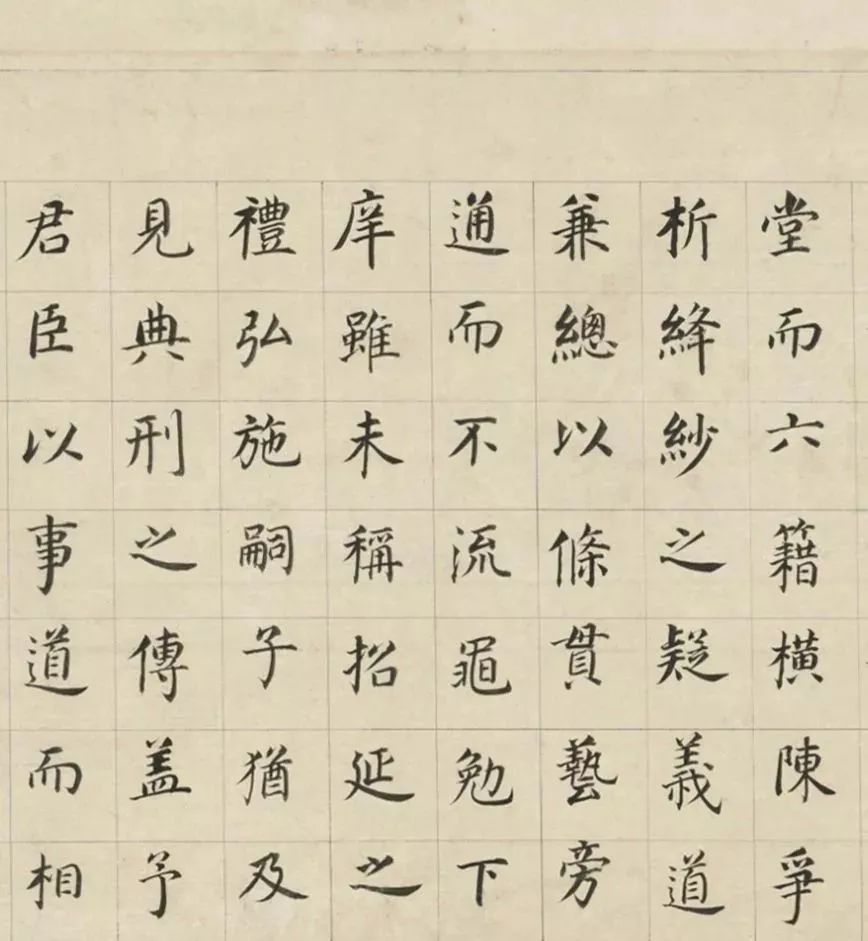 堂而六籍橫陳爭
析絳紗之疑義道
兼總以條貫藝旁
通而不流黽勉下
庠雖未稱招延之
禮弘施嗣子猶及
見典刑之傳蓋予
君臣以事道而相